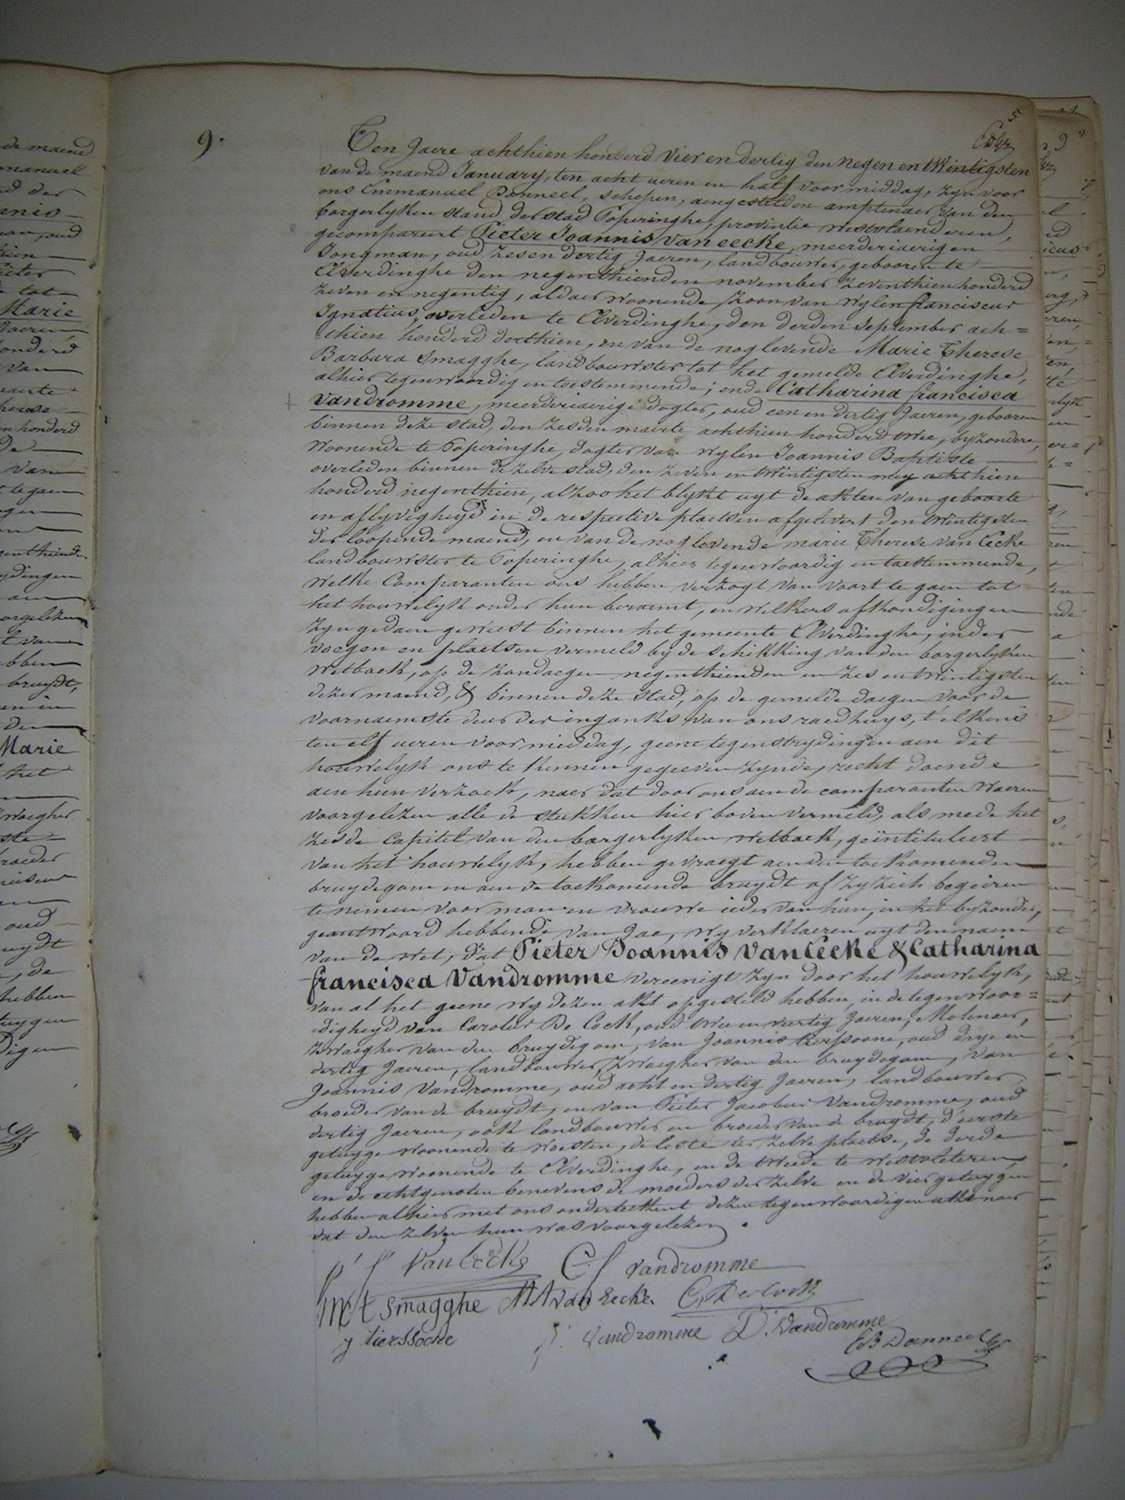 9.
5
Ten Jaere achthien honderd vier en dertig den negen en twintigsten
van de maend January, ten acht ueren en half voormiddag, zyn voor
ons Emmanuel Danneel, schepen, aengestelden amptenaer van den
borgerlyken stand der stad Poperinghe, provintie westvlaenderen,
gecompareert Pieter Joannis van eecke, meerderjaerigen
Jongman, oud zes en dertig Jaeren, landbouwer, gebooren te
Elverdinghe den negenthienden november zeventhien honderd
zeven en negentig, aldaer woonende, zoon van wylen franciscus
Ignatius, overleden te Elverdinghe, den derden September ach=
thien honderd derthien, en van de nog levende Marie Therese
Barbara Smagghe, landbouwster tot het gemelde Elverdinghe,
alhier tegenwoordig en toestemmende; ende Catharina francisca
vandromme, meerderjaerige dogter, oud een en dertig Jaeren, gebooren
binnen deze stad, den zesden maerte achthien honderd twee, byzondere,
woonende te Poperinghe, dogter van wylen Joannis Baptiste
overleden binnen de zelve stad, den zeven en twintigsten mey achthien
honderd negenthien, alzoo het blykt uyt de akten van geboorte
en aflyvigheyd in de respective plaetsen afgelevert den twintigsten
der loopende maend, en van de nog levende marie Therese van Eecke
landbouwster te Poperinghe, alhier tegenwoordig en toestemmende,
welke Comparanten ons hebben verzogt van voort te gaen tot
het houwelyk onder hun beraemt, en welkers afkondigingen
zyn gedaen geweest binnen het gemeente Elverdinghe, in der
voegen en plaetsen vermeld by de schikking van den borgerlyken
Wetboek, op de zondaegen negenthienden en zes en twintigsten
dezer maend, & binnen deze stad, op de gemelde daegen voor de
voornaemste deur der ingank van ons raedhuys, t'elkens
ten elf ueren voor middag, geene tegenstrydingen aen dit
houwelyk ons te kennen gegeeven zynde, recht doende
aen hun verzoek, naer dat door ons aen de comparanten waeren
voorgelezen alle de stukken hier boven vermeld, als mede het
zesde Capitel van den borgerlyken wetboek, geïntituleert
van het houwelyk, hebben gevraegt aen den toekomenden
bruydegom en aen de toekomende bruydt of zy zich begeiren
te nemen voor man en vrouwe ieder van hun, in het byzonder,
geantwoord hebbende van Jae, wy verklaeren uyt den naem
van de wet, dat Pieter Joannis Van Eecke & Catharina
francisca Vandromme vereenigt zyn door het houwelyk,
van al het geene wy dezen akt opgesteld hebben, in de tegenwoor=
digheyd van Carolus De Cock, oud twee en veertig Jaeren, Molenaer,
zwaegher van den bruydegom, van Joannis tierssoone, oud drye en
dertig Jaeren, landbouwer, zwaegher van den bruydegom, van
Joannis Vandromme, oud acht en dertig Jaeren, landbouwer
broeder van de bruydt, en van Pieter Jacobus Vandromme, oud
dertig Jaeren, ook landbouwer en broeder van de bruydt, d'eerste
getuyge woonende te Woesten, de leste ter zelve plaetse, de derde
getuyge woonende te Elverdinghe, en de tweede te westvleteren,
en de echtgenoten benevens de moeders der zelve en de vier getuygen
hebben alhier met ons onderteekent dezen tegenwoordigen akt naer
dat den zelven hun was voorgelezen.
P J Van Eecke C f vandromme
M t Smagghe M t van Eecke C De Cock
J tierssoone P. J vandromme D. Vandromme
E B Danneel